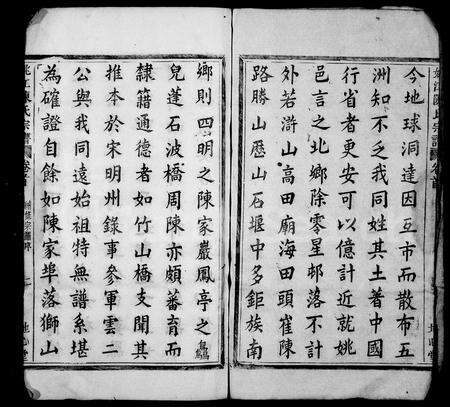 今地球洞達因互市而散布五
洲知不乏我同姓其土著中國
行省者更安可以億計近就姚
邑言之北鄉除零星邨落不計
外若滸山高田廟海田頭崔陳
路勝山歷山石堰中多鉅族南
鄉則四明之陳家巖鳳亭之鱻
兒蓬石波橋周陳亦頗蕃育而
隸籍通德者如竹山橋支聞其
推本於宋明州錄事參軍雲二
公與我同遠始祖特無譜系堪
為確證自餘如陳家埠落獅山